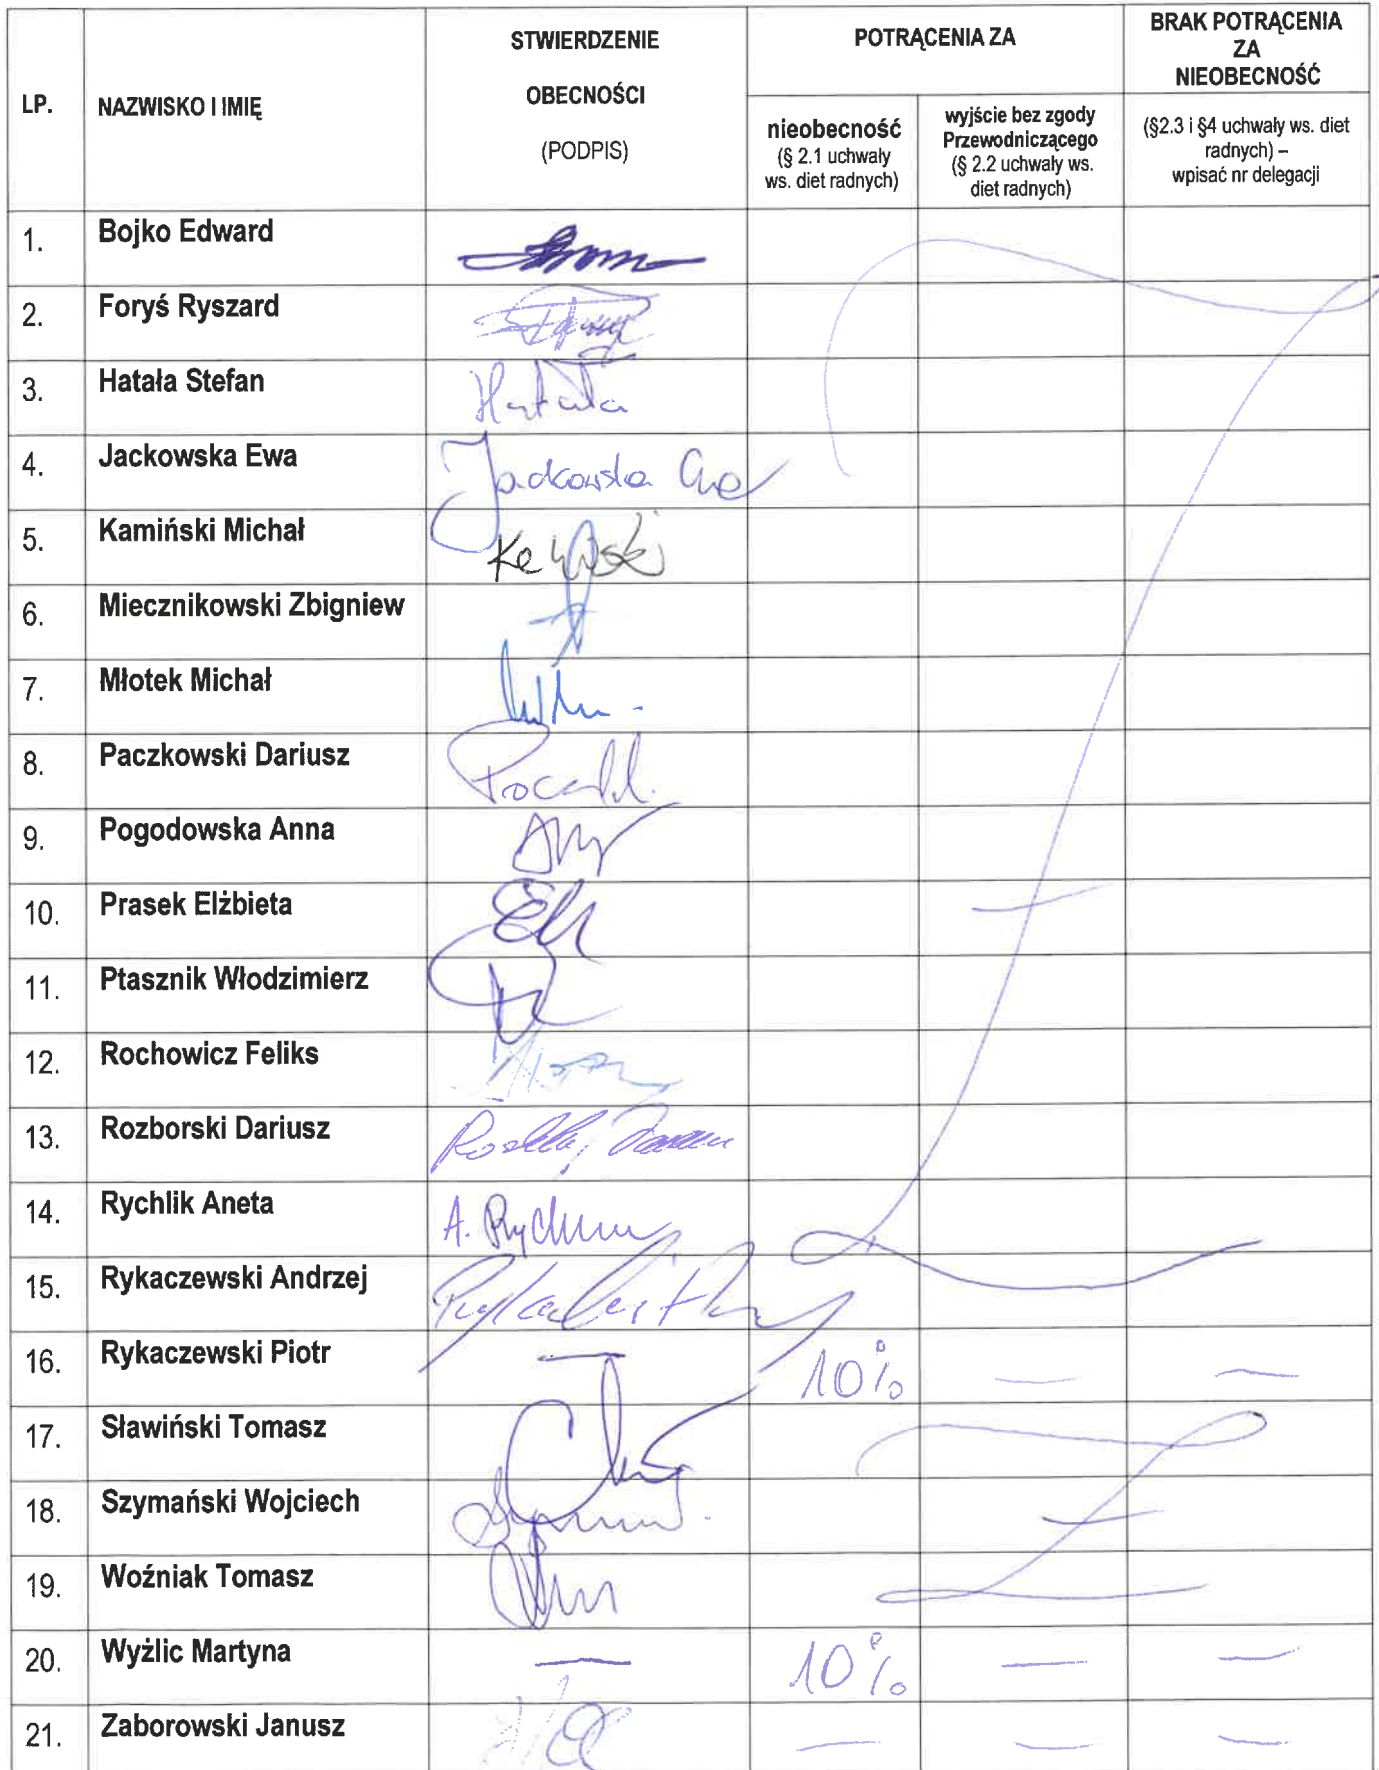 LP.
NAZWISKO I IMIĘ
STWIERDZENIE
OBECNOŚCI
(PODPIS)
POTRĄCENIA ZA
BRAK POTRĄCENIA
ZA
NIEOBECNOŚĆ
nieobecność
(§ 2.1 uchwały
ws. diet radnych)
wyjście bez zgody
Przewodniczącego
(§ 2.2 uchwały ws.
diet radnych)
(§2.3 i §4 uchwały ws. diet
radnych) –
wpisać nr delegacji
1. Bojko Edward
2. Foryś Ryszard
3. Hatała Stefan Hatała
4. Jackowska Ewa Jackowska Ewa
5. Kamiński Michał
6. Miecznikowski Zbigniew
7. Młotek Michał
8. Paczkowski Dariusz
9. Pogodowska Anna
10. Prasek Elżbieta
11. Ptasznik Włodzimierz
12. Rochowicz Feliks
13. Rozborski Dariusz
14. Rychlik Aneta A.
15. Rykaczewski Andrzej
16. Rykaczewski Piotr — 10% — —
17. Sławiński Tomasz
18. Szymański Wojciech
19. Woźniak Tomasz
20. Wyżlic Martyna — 10% — —
21. Zaborowski Janusz — — —